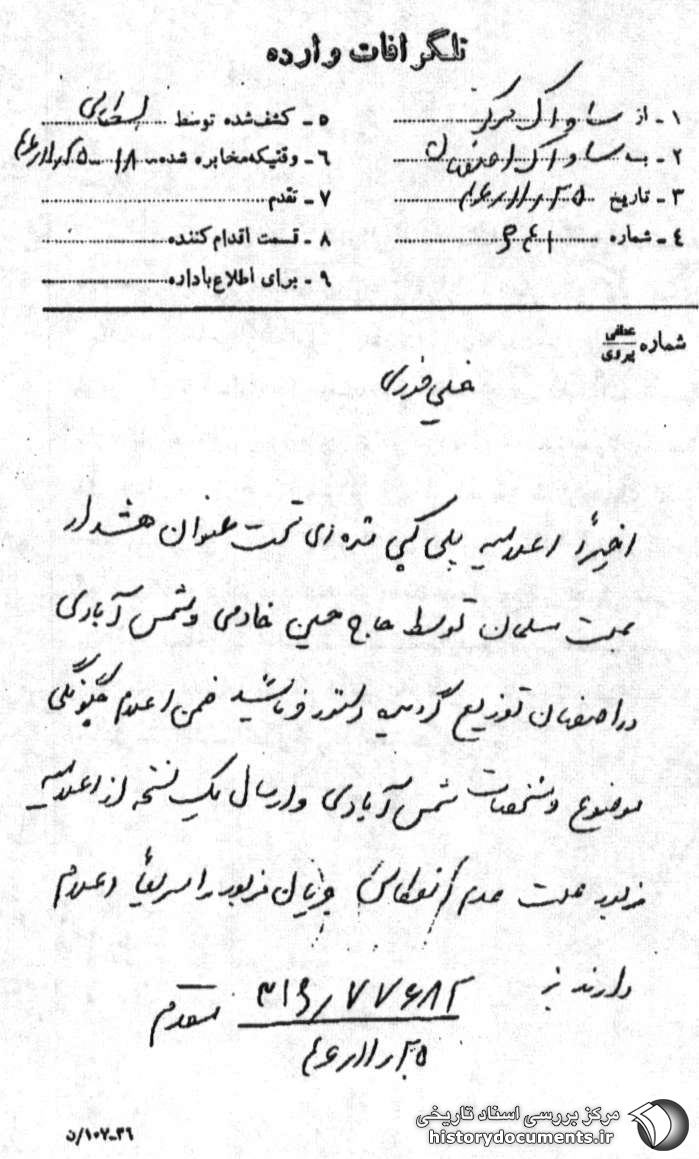 تلگرافات وارده
۱ - از ساواک مرکز
۲ - به ساواک اصفهان
۳ - تاریخ ۲۵/۱۱/۴۶
۴ - شماره
۵ - کشف شده توسط
۶ - وقتیکه مخابره شده
۷ - تقدم
۸ - قسمت اقدام کننده
۹ - برای اطلاع باداره
شماره عطفی
پیروی
خیلی فوری
اخیراً اعلامیه پلی کپی شده ای تحت عنوان هشدار
بملت مسلمان توسط حاج حسین خادمی و شمس آبادی
در اصفهان توزیع گردیده دستور فرمائید ضمن اعلام چگونگی
موضوع و مشخصات شمس آبادی و ارسال یک نسخه از اعلامیه
مزبور علت عدم انعکاس جریان مزبور را سریعاً اعلام
دارند
۳۱۶/۷۷۶۸۲ مقدم
۲۵/۱۱/۴۶
۳۶-۱۰۲/ن
مرکز بررسی اسناد تاریخی
historydocuments.ir